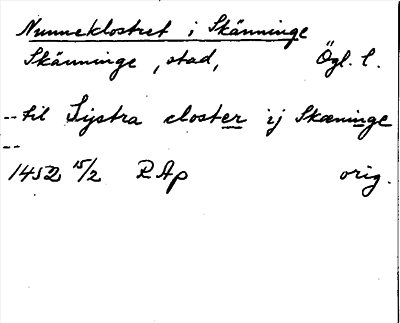 Nunneklostret i Skänninge
Skänninge, stad, Ögl. l.
-- til Systra closter ij Skæninge
--
1452 15/2 RAp orig.